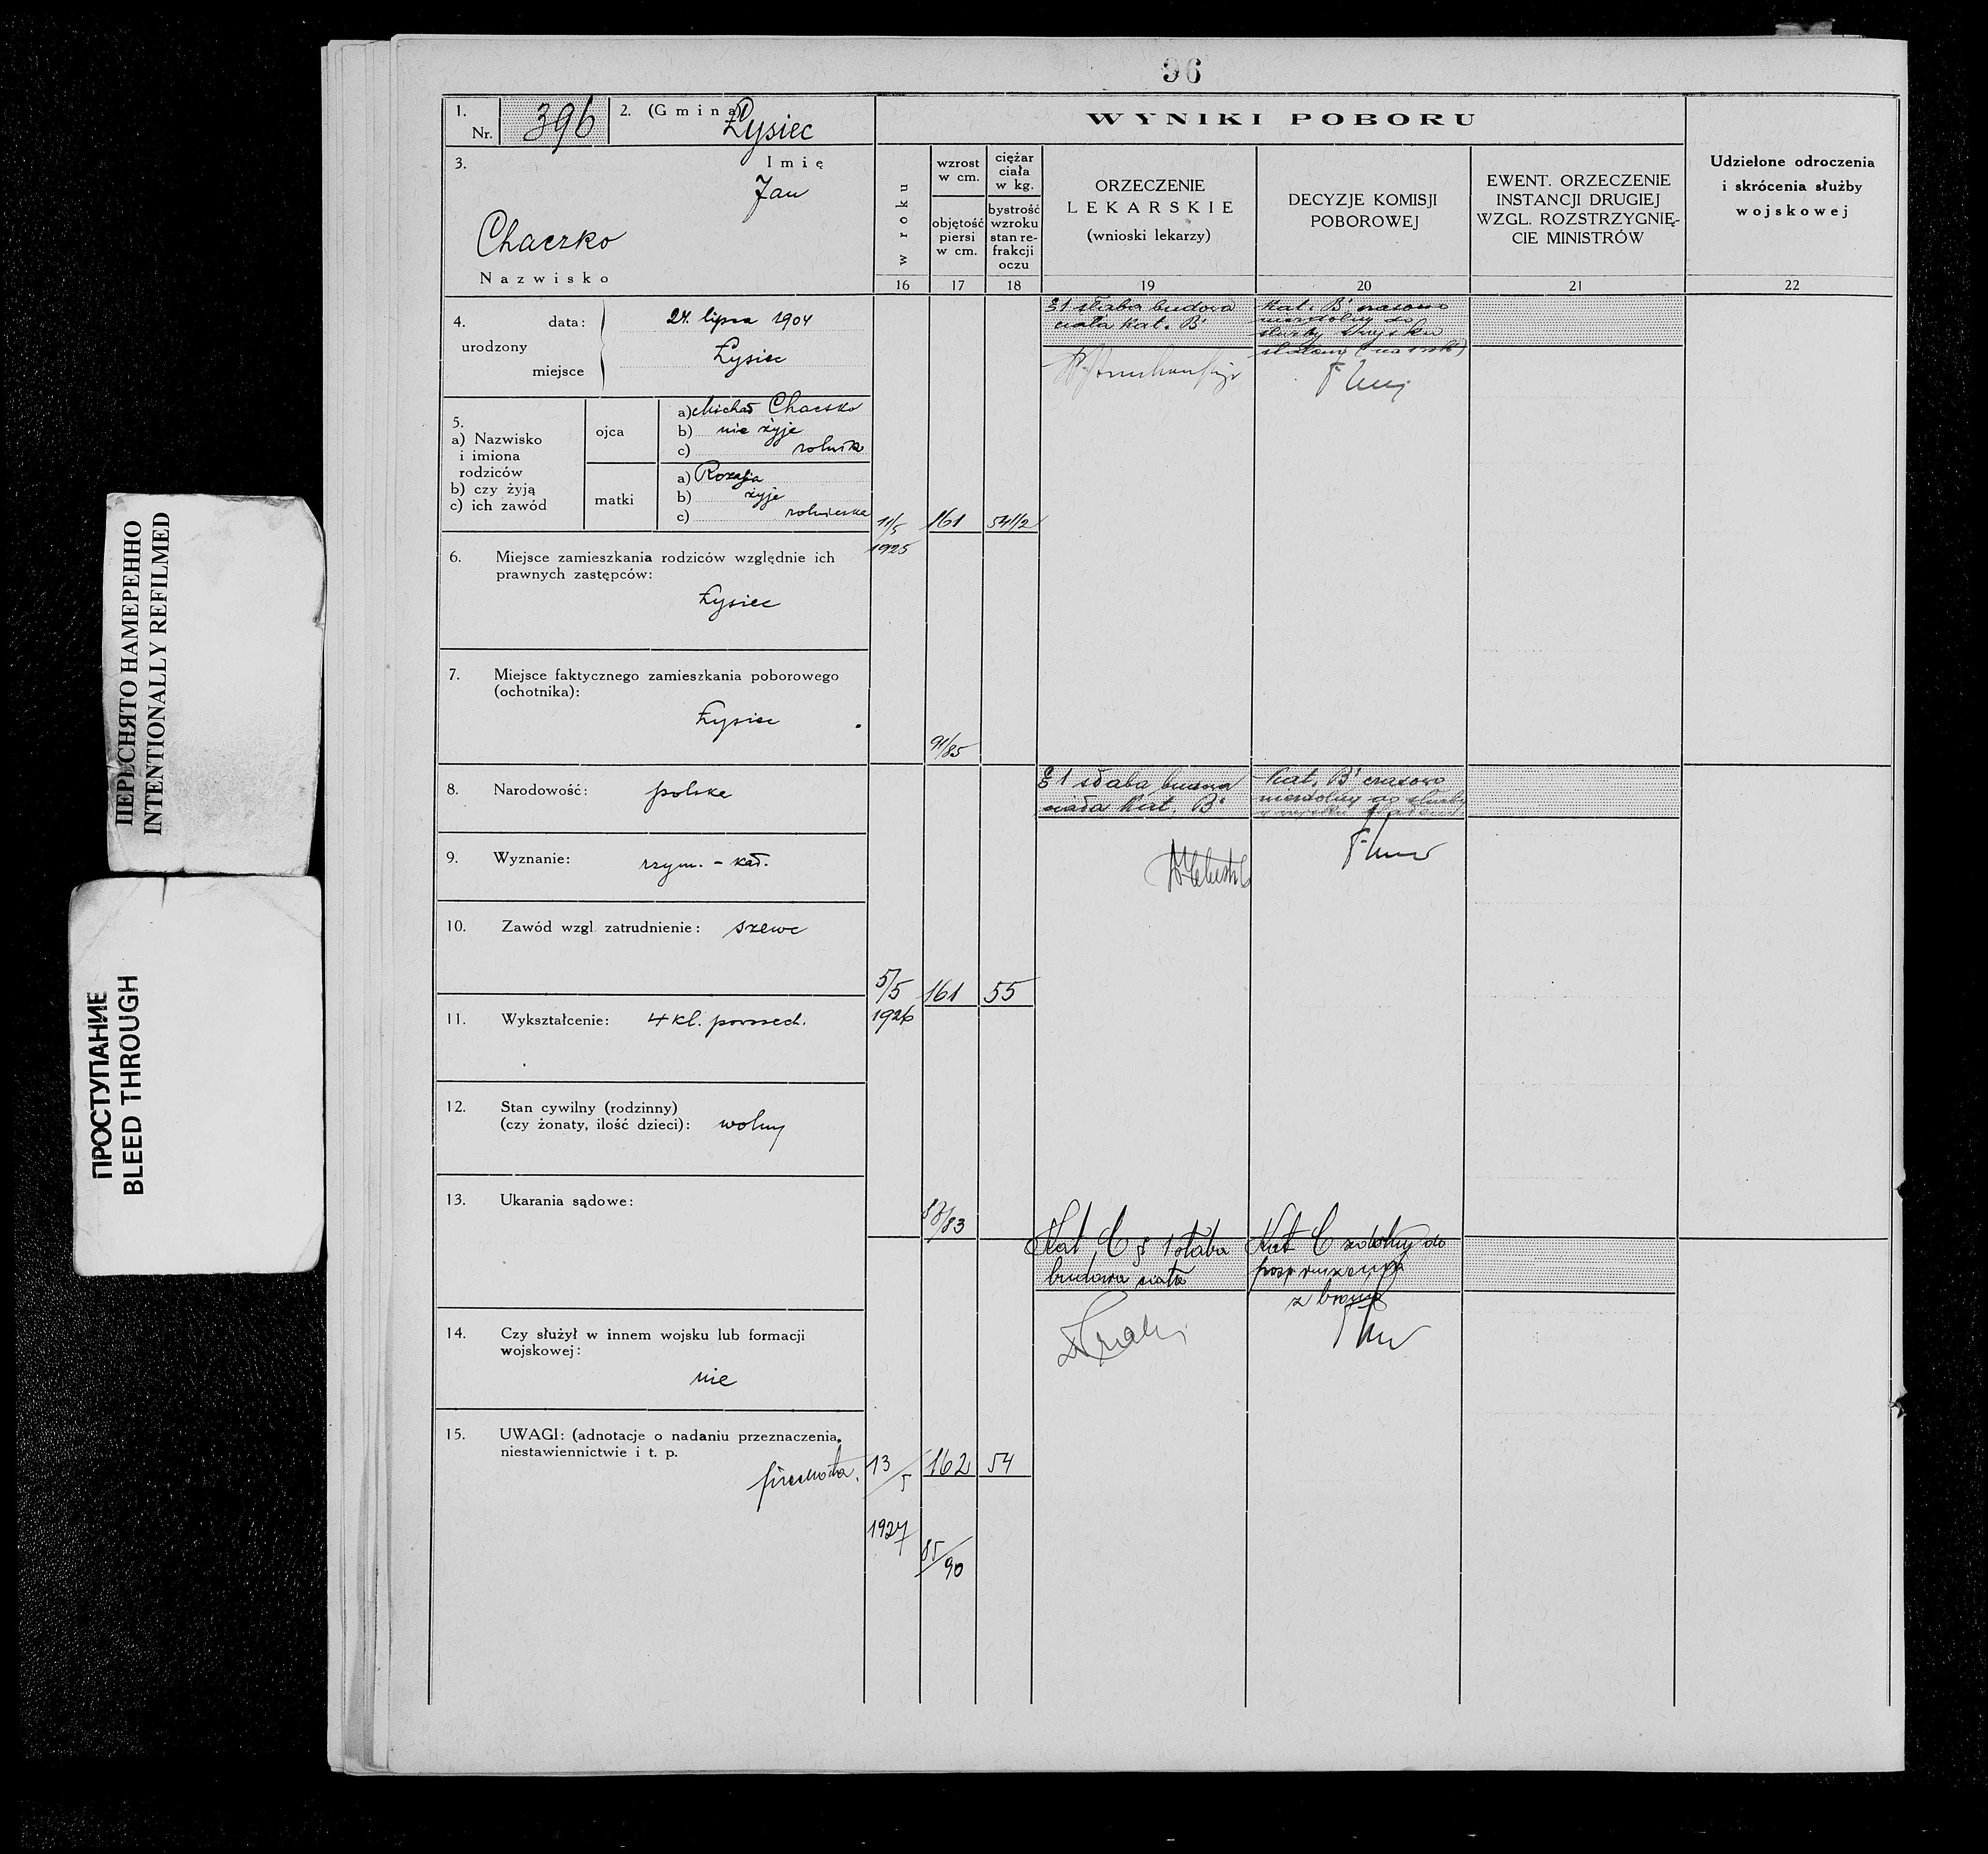 96
1.
Nr. 396
2. (Gmina)
Łysiec
3. Imię
Jan
Chaczko
Nazwisko
4. urodzony
data: 24. lipca 1904
miejsce Łysiec
5.
a) Nazwisko
i imiona
rodziców
b) czy żyją
c) ich zawód
ojca
a) Michał Chaczko
b) nie żyje
c) rolnik
matki
a) Rozalja
b) żyje
c) rolniczka
6. Miejsce zamieszkania rodziców względnie ich
prawnych zastępców:
Łysiec
7. Miejsce faktycznego zamieszkania poborowego
(ochotnika):
Łysiec
8. Narodowość: polska
9. Wyznanie: rzym. - kat.
10. Zawód wzgl. zatrudnienie: szewc
11. Wykształcenie: 4 kl. powszech.
12. Stan cywilny (rodzinny)
(czy żonaty, ilość dzieci): wolny
13. Ukarania sądowe:
14. Czy służył w innem wojsku lub formacji
wojskowej:
nie
15. UWAGI: (adnotacje o nadaniu przeznaczenia,
niestawiennictwie i t. p.
piechota.
WYNIKI POBORU
w roku
16
wzrost
w cm.
objętość
piersi
w cm.
17
ciężar
ciała
w kg.
bystrość
wzroku
stan re-
frakcji
oczu
18
ORZECZENIE
LEKARSKIE
(wnioski lekarzy)
19
DECYZJE KOMISJI
POBOROWEJ
20
EWENT. ORZECZENIE
INSTANCJI DRUGIEJ
WZGL. ROZSTRZYGNIĘ-
CIE MINISTRÓW
21
Udzielone odroczenia
i skrócenia służby
wojskowej
22
11/5
1925
161
54 1/2
91/85
§ 1 słaba budowa
ciała Kat. B
Kat. B czasowo
niezdolny do
służby w wojsku
stałem
5/5
1926
161
55
/83
§ 1 słaba budowa
ciała Kat. B
Kat. B czasowo
niezdolny do służby
13/5
1927
162
54
85/90
Kat C § 1 słaba
budowa ciała
Kat C zdolny do
posp. ruszenia
z bronią
ПЕРЕСНЯТО НАМЕРЕННО
INTENTIONALLY REFILMED
ПРОСТУПАНИЕ
BLEED THROUGH